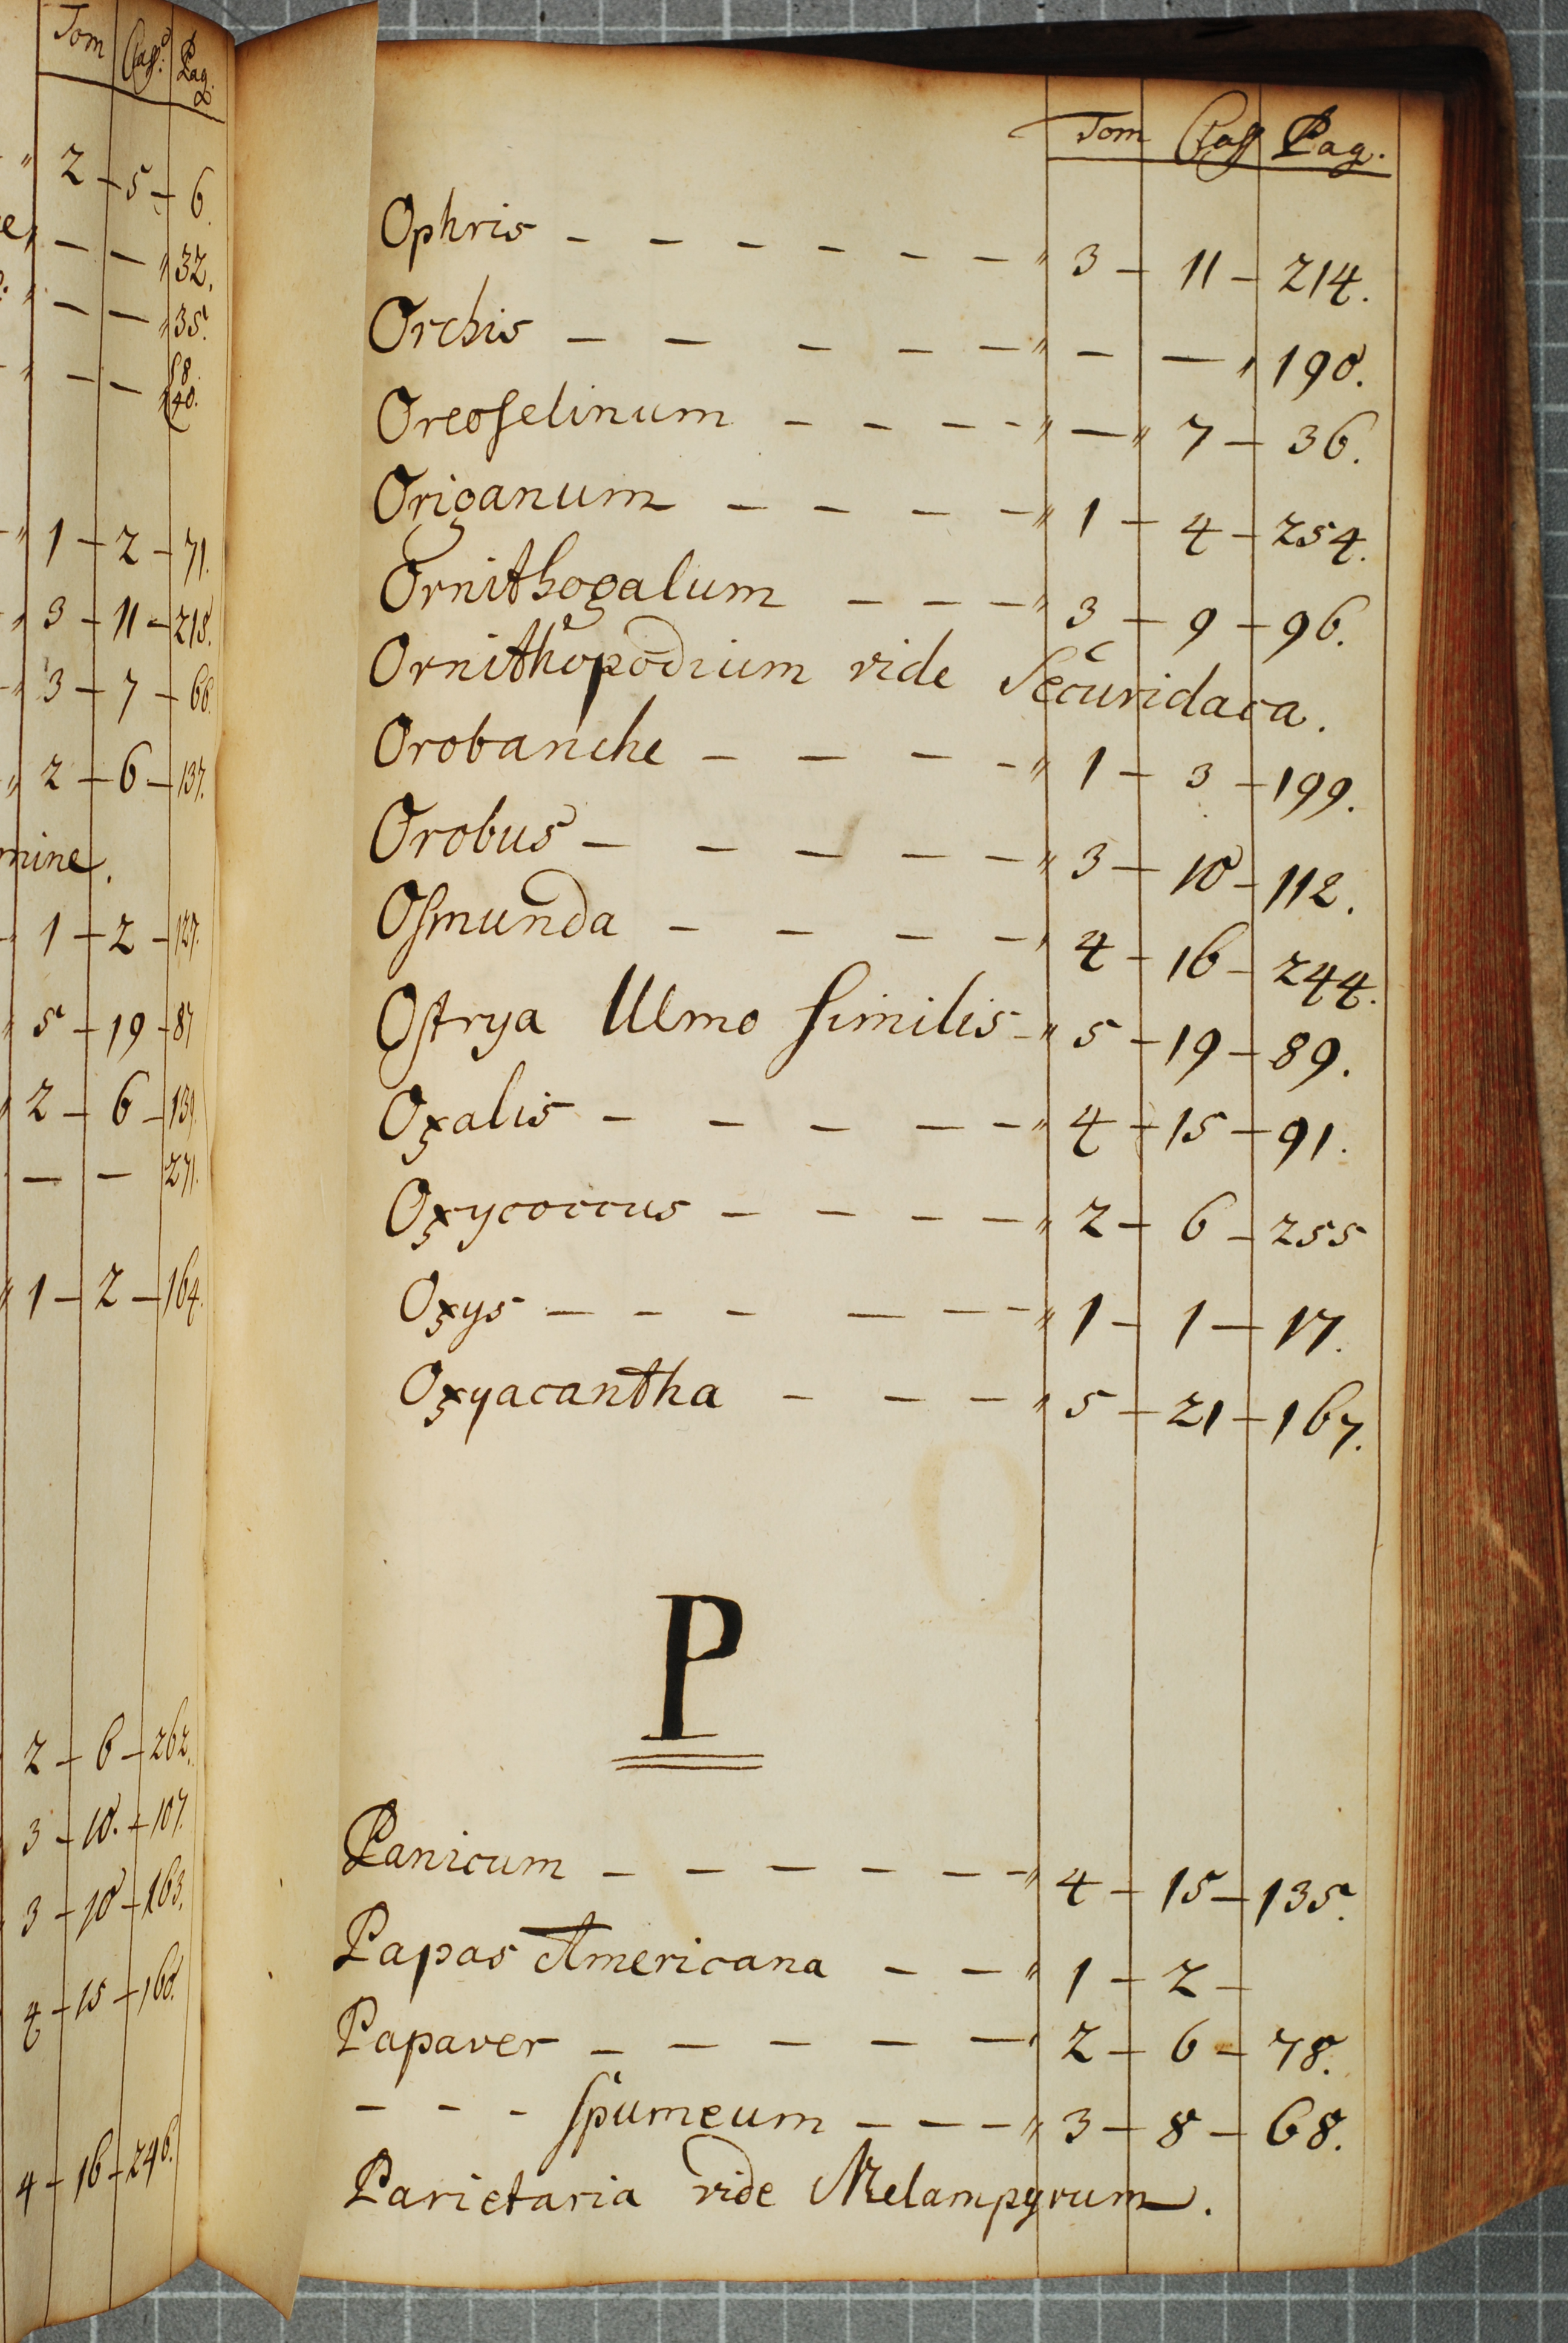 Tom Claß: Pag.
" 2 - 5 - 6.
— — " 32.
" — — " 35.
" — — 8. 40.
" 1 - 2 - 71.
" 3 - 11 - 218.
" 3 - 7 - 66.
" 2 - 6 - 137.
mine.
1 - 2 - 127.
" 5 - 19 - 87
" 2 - 6 - 139.
— — 271.
" 1 - 2 - 164.
2 - 6 - 262.
3 - 10. - 107.
3 - 10 - 163.
4 - 15 - 160.
4 - 16 - 246.
Tom Claß Pag.
Ophris - - - - - - " 3 - 11 - 214.
Orchis - - - - - " — — " 190.
Oreoselinum - - - - " — " 7 - 36.
Origanum - - - - " 1 - 4 - 254.
Ornithogalum - - - " 3 - 9 - 96.
Ornithopodium vide Securidaca.
Orobanche - - - - " 1 - 3 - 199.
Orobus - - - - - " 3 - 10 - 112.
Osmunda - - - - " 4 - 16 - 244.
Ostrya Ulmo similis - " 5 - 19 - 89.
Oxalis - - - - - - " 4 - 15 - 91.
Oxycoccus - - - - " 2 - 6 - 255
Oxys - - - - - - " 1 - 1 - 17.
Oxyacantha - - - " 5 - 21 - 167.
P
Panicum - - - - - - " 4 - 15 - 135.
Papas Americana - - - " 1 - 2 -
Papaver - - - - - " 2 - 6 - 78.
- - - spumeum - - - " 3 - 8 - 68.
Parietaria vide Melampyrum.